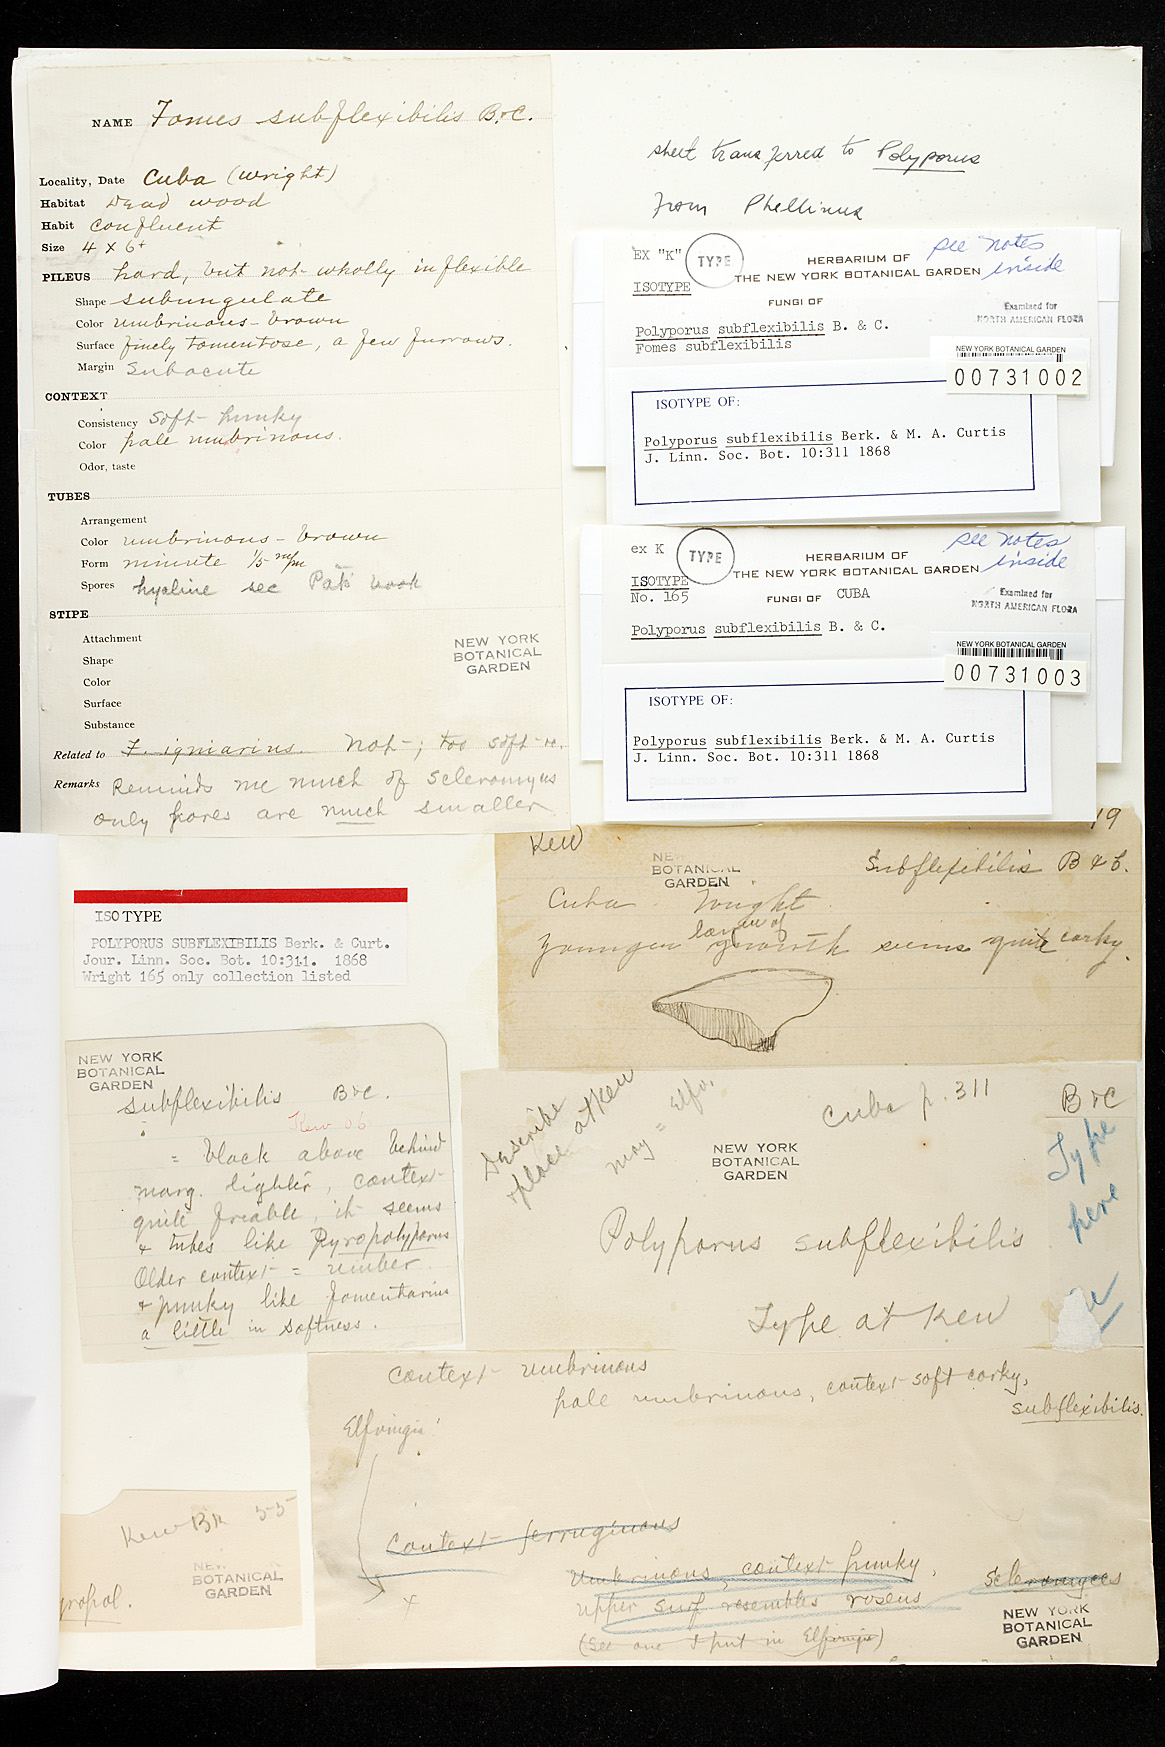 NAME Fomes subflexibilis B&C.
Locality, Date Cuba (Wright)
Habitat Dead wood
Habit Confluent
Size 4 x 6+
PILEUS hard, but not wholly inflexible
Shape subungulate
Color umbrinous-brown
Surface finely tomentose, a few furrows.
Margin Subacute
CONTEXT
Consistency soft-punky
Color pale umbrinous.
Odor, taste
TUBES
Arrangement
Color umbrinous-brown
Form minute 1/5 mm
Spores hyaline see Pat's book
STIPE
Attachment
Shape
Color
Surface
Substance
NEW YORK
BOTANICAL
GARDEN
Related to F. igniarius. Not-; too soft
Remarks Reminds me much of Scleromyces
only pores are much smaller
sheet transferred to Polyporus
from Phellinus
EX "K" TYPE
see notes
inside
ISOTYPE
HERBARIUM OF
THE NEW YORK BOTANICAL GARDEN
FUNGI OF
Examined for
NORTH AMERICAN FLORA
Polyporus subflexibilis B. & C.
Fomes subflexibilis
NEW YORK BOTANICAL GARDEN
00731002
ISOTYPE OF:
Polyporus subflexibilis Berk. & M. A. Curtis
J. Linn. Soc. Bot. 10:311 1868
ex K TYPE
see notes
inside
ISOTYPE
No. 165
HERBARIUM OF
THE NEW YORK BOTANICAL GARDEN
FUNGI OF CUBA
Examined for
NORTH AMERICAN FLORA
Polyporus subflexibilis B. & C.
NEW YORK BOTANICAL GARDEN
00731003
ISOTYPE OF:
Polyporus subflexibilis Berk. & M. A. Curtis
J. Linn. Soc. Bot. 10:311 1868
Kew 19
NEW
BOTANICAL
GARDEN
Subflexibilis B & C.
Cuba Wright
younger growth seems quite corky.
ISOTYPE
POLYPORUS SUBFLEXIBILIS Berk. & Curt.
Jour. Linn. Soc. Bot. 10:311. 1868
Wright 165 only collection listed
NEW YORK
BOTANICAL
GARDEN
subflexibilis B&C.
Kew 06
= black above behind
marg. lighter, context
quite friable, it seems
& tubes like Pyropolyporus
Older context = umber
& punky like fomentarius
a little in softness.
Describe
& place at Kew
may = Elfv.
Cuba p. 311
B&C
Type
here
NEW YORK
BOTANICAL
GARDEN
Polyporus subflexibilis
Type at Kew
Context umbrinous
pale umbrinous, context soft corky,
subflexibilis.
Elfvingia!
Context ferruginous
Umbrinous, context punky,
Scleromyces
x
upper surf resembles roseus
(See one I put in Elfvingia)
NEW YORK
BOTANICAL
GARDEN
Kew Bk 55
NEW
BOTANICAL
GARDEN
yropol.